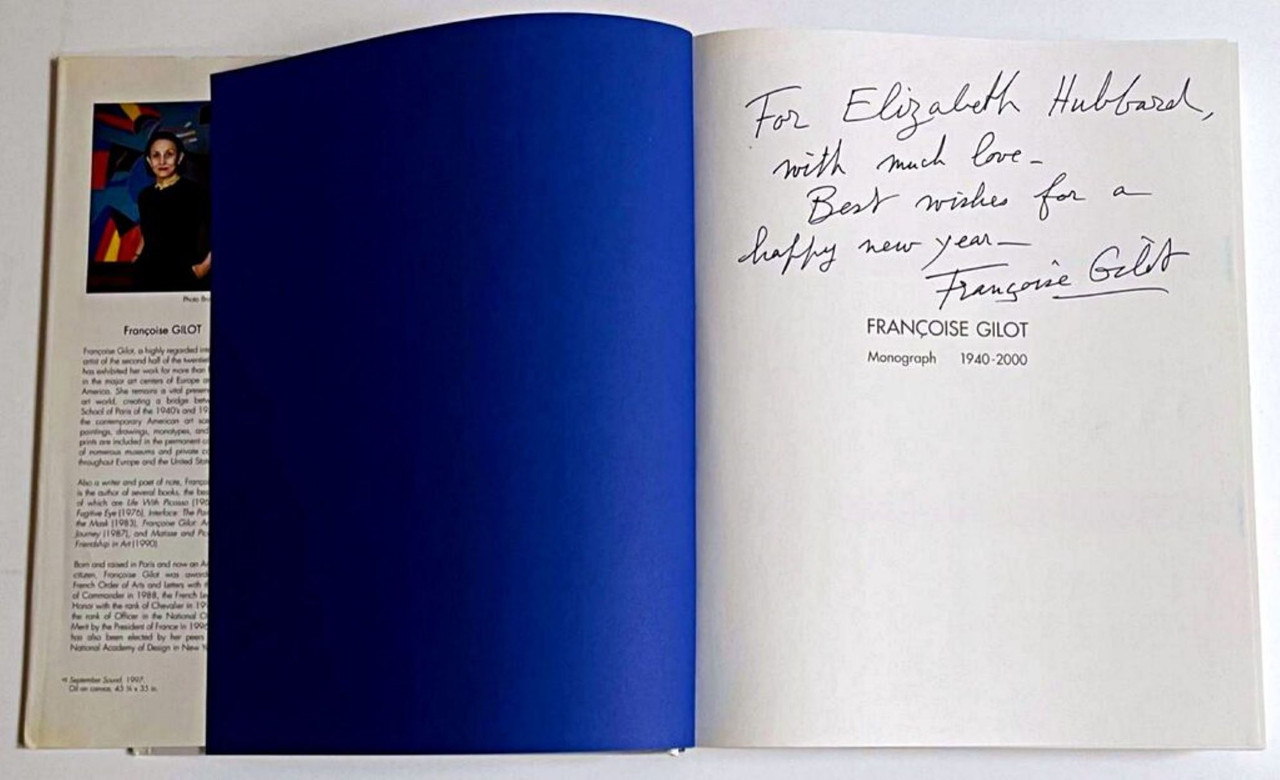 Photo
Françoise GILOT
Françoise Gilot, a highly regarded
artist of the second half of the
has exhibited her work for more than
in the major art centers of Europe
America. She remains a vital
art world, creating a bridge
School of Paris of the 1940's and
the contemporary American art
paintings, drawings, monotypes, and
prints are included in the permanent
of numerous museums and private
throughout Europe and the United
Also a writer and poet of note,
is the author of several books, the
of which are Life With Picasso
Fugitive Eye (1976), Interface: The
the Mask (1983), Françoise Gilot:
Journey (1987), and Matisse and
Friendship in Art (1990).
Born and raised in Paris and now an
citizen, Françoise Gilot was
French Order of Arts and Letters with
of Commander in 1988, the French
Honor with the rank of Chevalier in
the rank of Officer in the National
Merit by the President of France in
has also been elected by her peers
National Academy of Design in New
September Sound, 1997.
Oil on canvas, x 35 in.
For Elizabeth Hubbard,
with much love -
Best wishes for a
happy new year —
Françoise Gilot
FRANÇOISE GILOT
Monograph 1940-2000